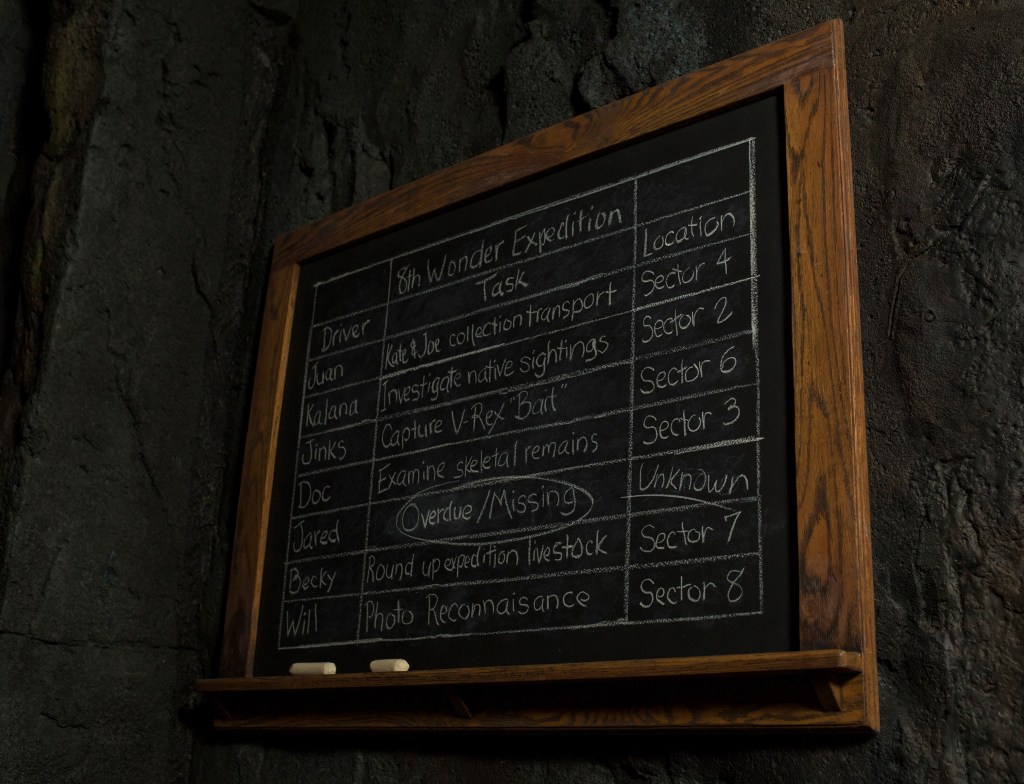 8th Wonder Expedition
Driver Task Location
Juan Kate & Joe collection transport Sector 4
Kalana Investigate native sightings Sector 2
Jinks Capture V-Rex "Bait" Sector 6
Doc Examine skeletal remains Sector 3
Jared Overdue/Missing Unknown
Becky Round up expedition livestock Sector 7
Will Photo Reconnaisance Sector 8